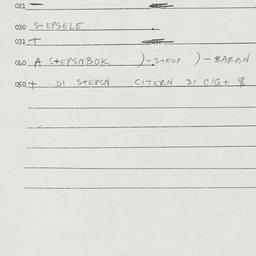 021 —
030 S+EPSELE
031 +
040 A S+EPSNBOK )-S+FOP )-BARAN
050 + . DI S+EPSN CITERN DI CIG+ 8